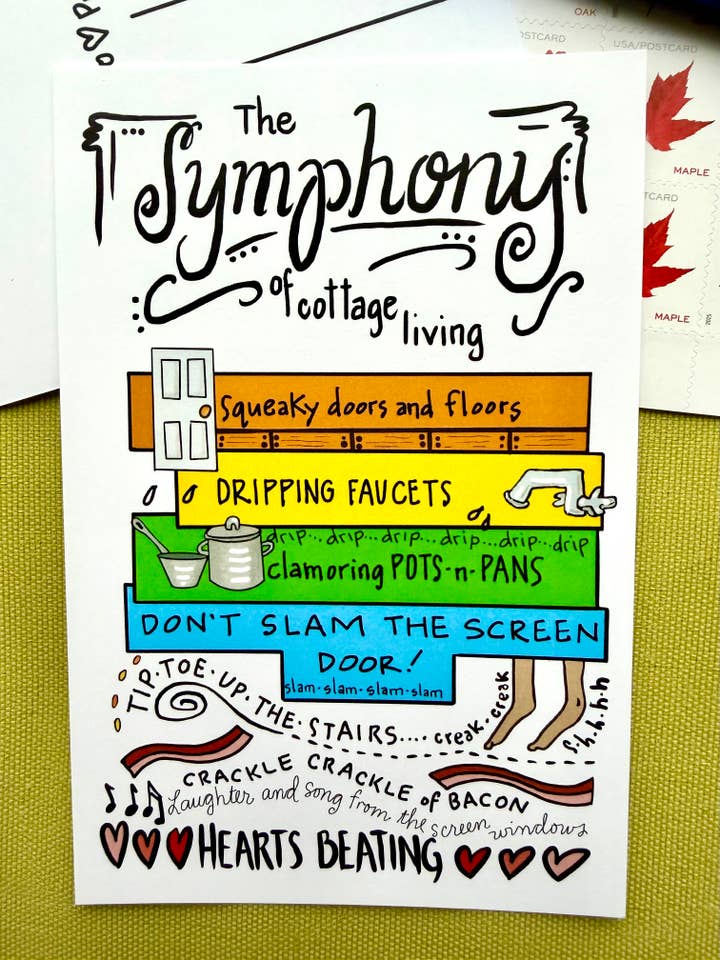 OAK
POSTCARD
USA/POSTCARD
MAPLE
MAPLE
2015
The
Symphony
of cottage living
Squeaky doors and floors
DRIPPING FAUCETS
drip... drip... drip... drip... drip... drip
clamoring POTS-n-PANS
DON'T SLAM THE SCREEN
DOOR!
slam-slam-slam-slam
TIP·TOE·UP·THE·STAIRS.... creak·creak
S·h·h·h·h
CRACKLE CRACKLE of BACON
Laughter and song from the screen windows
HEARTS BEATING